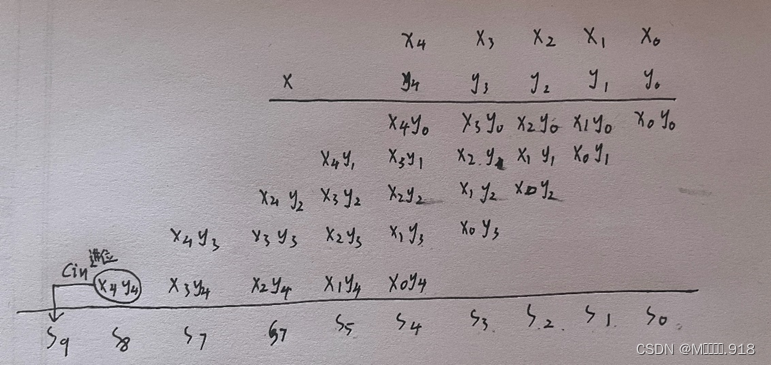 x₄ x₃ x₂ x₁ x₀
× y₄ y₃ y₂ y₁ y₀
x₄y₀ x₃y₀ x₂y₀ x₁y₀ x₀y₀
x₄y₁ x₃y₁ x₂y₁ x₁y₁ x₀y₁
x₄y₂ x₃y₂ x₂y₂ x₁y₂ x₀y₂
x₄y₃ x₃y₃ x₂y₃ x₁y₃ x₀y₃
Cin 进位 x₄y₄ x₃y₄ x₂y₄ x₁y₄ x₀y₄
S₉ S₈ S₇ S₇ S₅ S₄ S₃. S.₂. S₁. S₀.
CSDN @M▯▯▯▯.918